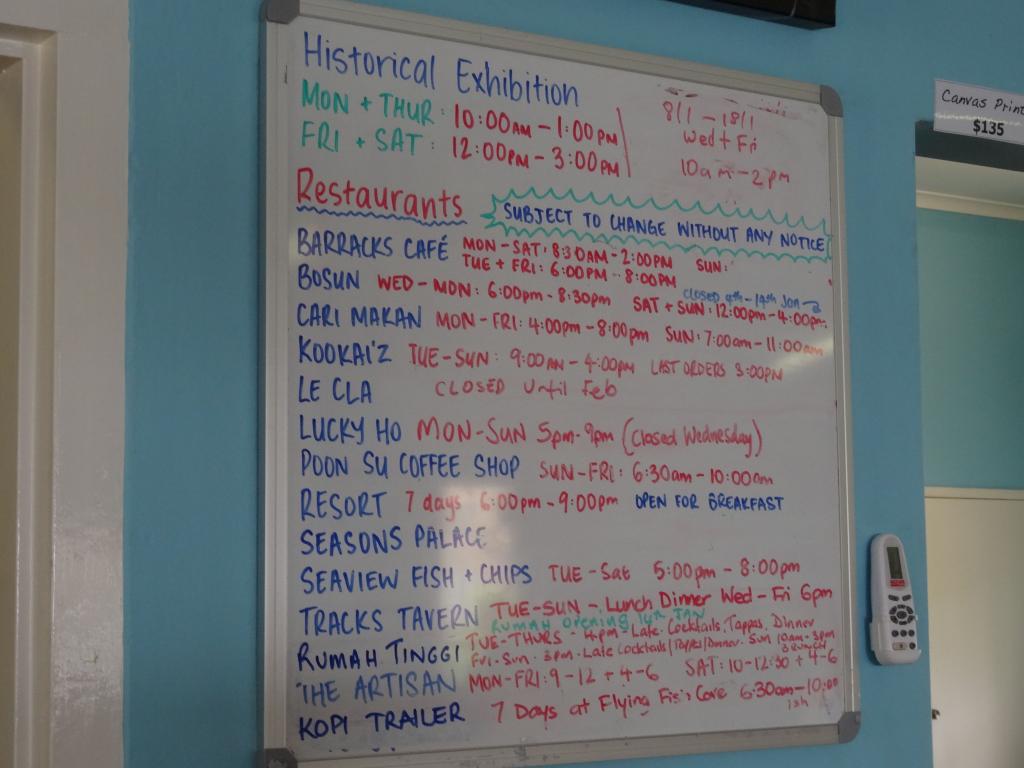 Historical Exhibition
MON + THUR: 10:00AM - 1:00PM
FRI + SAT: 12:00PM - 3:00PM
8/1 - 18/1
Wed + Fri
10am - 2pm
Canvas Print
$135
Restaurants
SUBJECT TO CHANGE WITHOUT ANY NOTICE
BARRACKS CAFÉ MON - SAT: 8:30AM - 2:00PM SUN:
TUE + FRI: 6:00PM - 8:00PM
CLOSED 9th - 14th Jan
BOSUN WED - MON: 6:00pm - 8:30pm SAT + SUN: 12:00pm - 4:00pm
CARI MAKAN MON - FRI: 4:00pm - 8:00pm SUN: 7:00am - 11:00am
KOOKAI'Z TUE-SUN: 9:00AM - 4:00PM LAST ORDERS 3:00PM
LE CLA CLOSED Until Feb
LUCKY HO MON-SUN 5pm-9pm (Closed Wednesday)
POON SU COFFEE SHOP SUN-FRI: 6:30am - 10:00am
RESORT 7 days 6:00pm - 9:00pm OPEN FOR BREAKFAST
SEASONS PALACE
SEAVIEW FISH + CHIPS TUE-Sat 5:00pm - 8:00pm
TRACKS TAVERN TUE-SUN - Lunch Dinner Wed - Fri 6pm
RUMAH OPENING 14th JAN
RUMAH TINGGI TUE-THURS - 4pm - Late. Cocktails, Tappas, Dinner
Fri-Sun: 3pm - Late Cocktails/Tappas/Dinner. Sun 10am-3pm
BRUNCH
THE ARTISAN MON-FRI: 9-12 + 4-6 SAT: 10-12:30 + 4-6
KOPI TRAILER 7 Days at Flying Fish Cove 6:30am - 10:00
ish